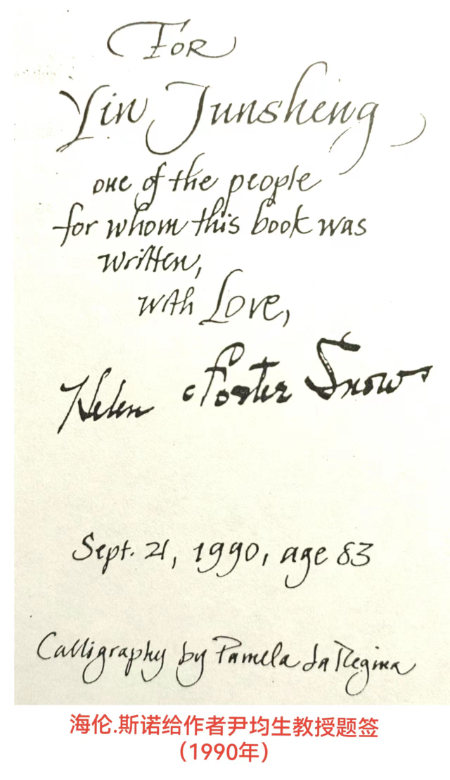 For
Yin Junsheng,
one of the people
for whom this book was
written,
with Love,
Helen Foster Snow
Sept. 21, 1990, age 83
Calligraphy by Pamela LaRegina
海伦.斯诺给作者尹均生教授题签
（1990年）